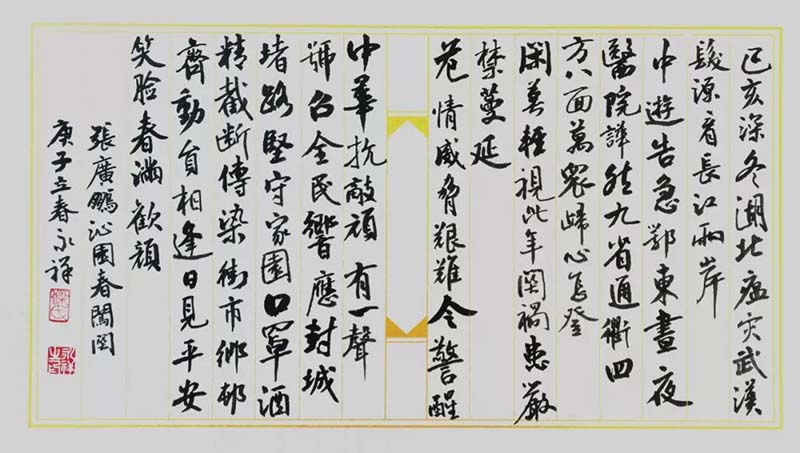 己亥深冬湖北瘟灾武漢
髮源看長江兩岸
中遊告急鄂東晝夜
醫院譁然九省通衢四
方八面萬眾歸心怎登
閑莫輕視此年関禍患嚴
禁蔓延
情威脅艱難令警醒
中華抗敵頑有一聲
號召全民響應封城
堵路堅守家園口罩酒
精截斷傳染街市鄉邨
齊動員相逢日見平安
笑臉春滿歡顔
張廣鵬沁園春闖関
庚子立春永祥